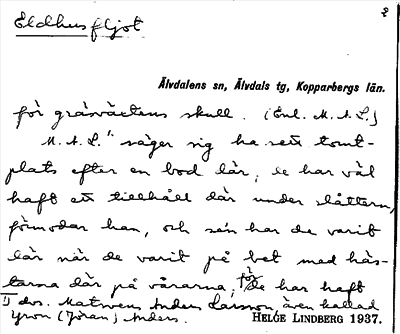 Eldhusfljot
2
Älvdalens sn, Älvdals tg, Kopparbergs län.
för gräsväxtens skull. (Enl. M.A.L.)
M.A.L.¹⁾ säger sig ha sett tomt-
plats efter en bod där; de har väl
haft ett tillhåll där under slåttern,
förmodar han, och sen har de varit
där när de varit på bet med häs-
tarna där på vårarna, för de har haft
1) dvs. Matswens Anders Larsson, även kallad
Yron (Jöran) Anders.
HELGE LINDBERG 1937.